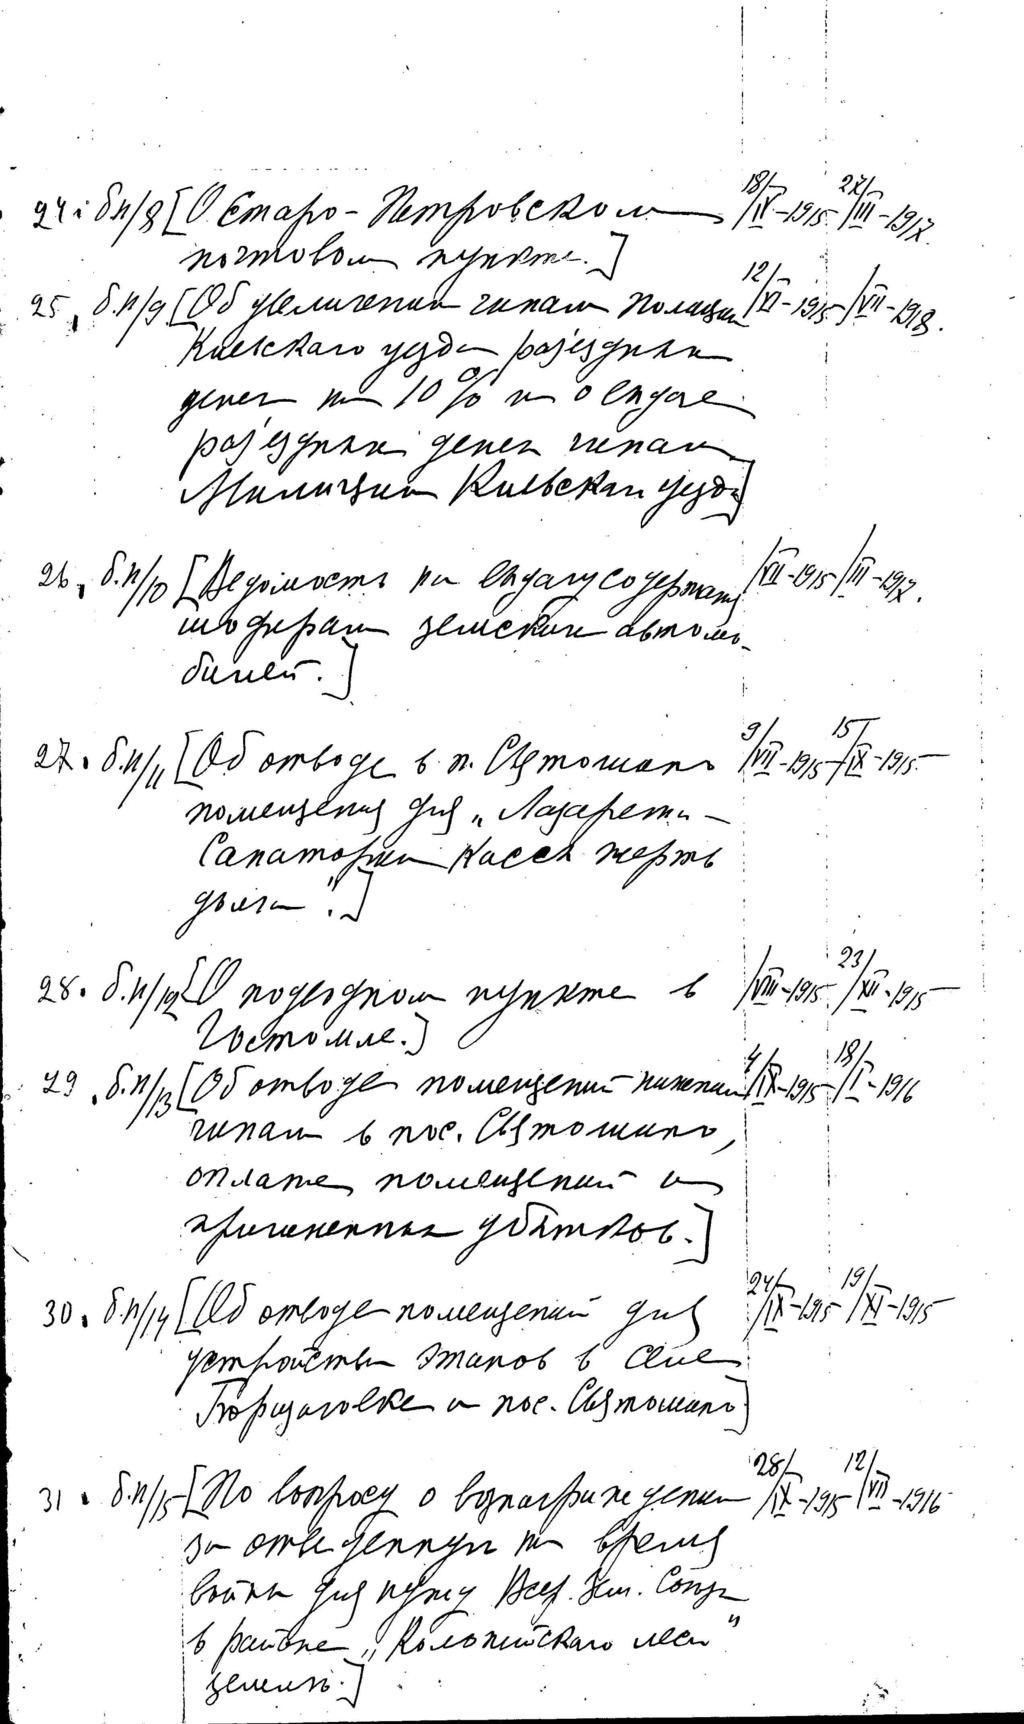 24. б.н/8 [О Старо-Петровском 18/IV-1915 27/III-1917.
почтовом пункте.]
25. б.н/9 [Об увеличении чинам полиции 12/XI-1915 /VII-1918.
Киевскаго уезда разъездных
денег на 10% и о выдаче
разъездных денег чинам
Милиции Киевскаго уезда]
26. б.н/10 [Ведомость на выдачу содержания /VII-1915 /III-1917.
шоферам земских автомо-
билей.]
27. б.н/11 [Об отводе в п. Святошино 9/VII-1915 15/IX-1915
помещения для „Лазарета-
Санатории Кассы жертв
долга".]
28. б.н/12 [О подводном пункте в /VIII-1915 23/XII-1915
Гостомле.]
29. б.н/13 [Об отводе помещений нижним 4/IX-1915 18/I-1916
чинам в пос. Святошино,
оплате помещений и
причиненных убытков.]
30. б.н/14 [Об отводе помещений для 24/IX-1915 19/XI-1915
устройства этапов в селе
Борщаговке и пос. Святошино]
31. б.н/15 [По вопросу о вознаграждении 28/IX-1915 12/VII-1916
за отведенную на время
войны для нужд Всер. Зем. Союза
в районе „Колонийскаго леса"
землю.]